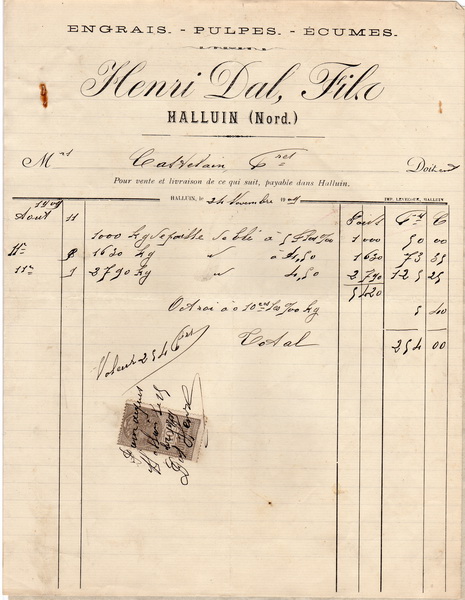 ENGRAIS. - PULPES. - ÉCUMES.
Henri Dal, Fils
HALLUIN (Nord.)
Mrs Castelain Fres Doivent
Pour vente et livraison de ce qui suit, payable dans Halluin.
HALLUIN, le 24 9vembre 1909 IMP. HALLUIN
1909 Poids Frs C
Aout 11 1000 kg de paille de blé à 5 Frs les %00 1000 50 00
8 1630 kg " à 4,50 1630 73 35
1 2790 kg " 4,50 2790 125 25
5420
Octroi à 0 10 les %00 kg 5 40
Total 254 00
Valeur 254 Frs